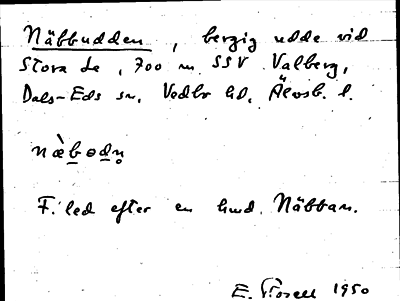 Näbbudden, bergig udde vid
Stora Le, 700 m SSV Valberg,
Dals-Eds sn, Vedbo hd, Älvsb. l.
næ̀bɵdn̥
F. led efter en hmd. Näbban.
E. 1950